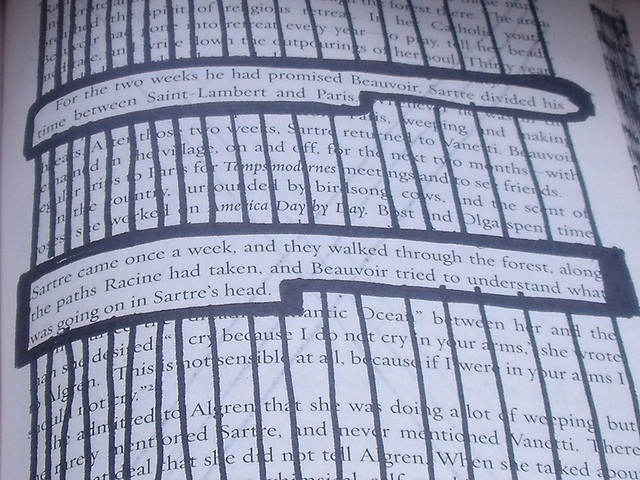 spirit of religious retreat. In her Catholic youth,
gone into retreat every year to pray, tell her beads
and write down the outpourings of her soul. Thirty years
For the two weeks he had promised Beauvoir, Sartre divided his
time between Saint-Lambert and Paris,
Paris, weeping and making
After those two weeks, Sartre returned to Vanetti. Beauvoir
in the village, on and off, for the next two months—with
trips to Paris for Temps modernes meetings and to see friends.
In the country, surrounded by birdsong, cows, and the scent of
she worked on America Day by Day. Bost and Olga spent time
Sartre came once a week, and they walked through the forest, along
the paths Racine had taken, and Beauvoir tried to understand what
was going on in Sartre's head.
Ocean" between her and the
she desired. "I cry because I do not cry in your arms," she wrote
Algren. "This is not sensible at all, because if I were in your arms I
should not cry."2
she admitted to Algren that she was doing a lot of weeping, but
rarely mentioned Sartre, and never mentioned Vanetti. There
deal that she did not tell Algren. When she talked about
whimsical